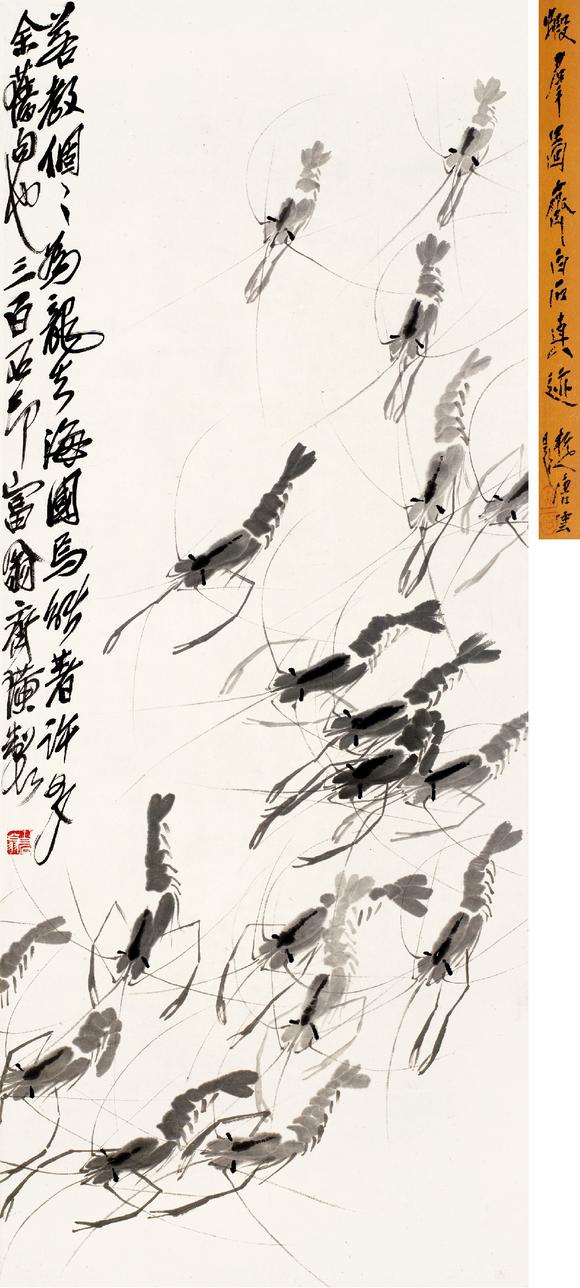 若教個々為龍去海國焉能著許多
余舊句也三百石印富翁齊璜製
蝦群圖齊白石真迹
唐雲